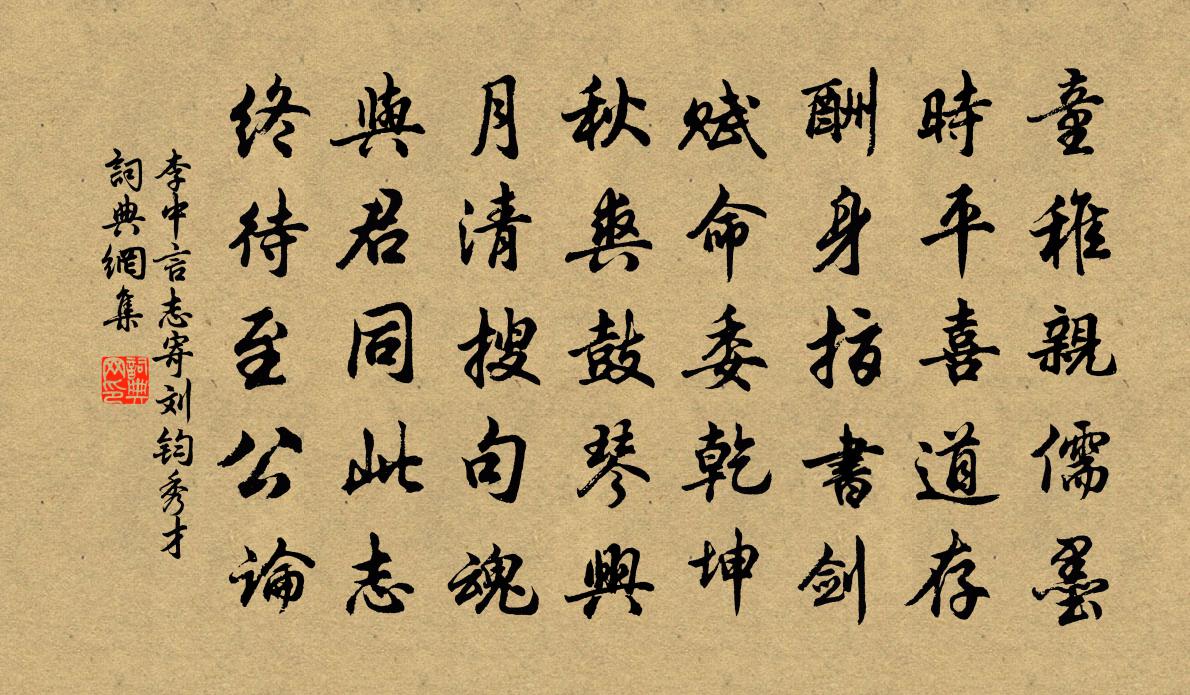 童稚親儒墨
時平喜道存
酬身指書劍
賦命委乾坤
秋爽鼓琴興
月清搜句魂
與君同此志
終待至公論
李中言志寄刘鈞秀才
詞典網集
詞典
网印